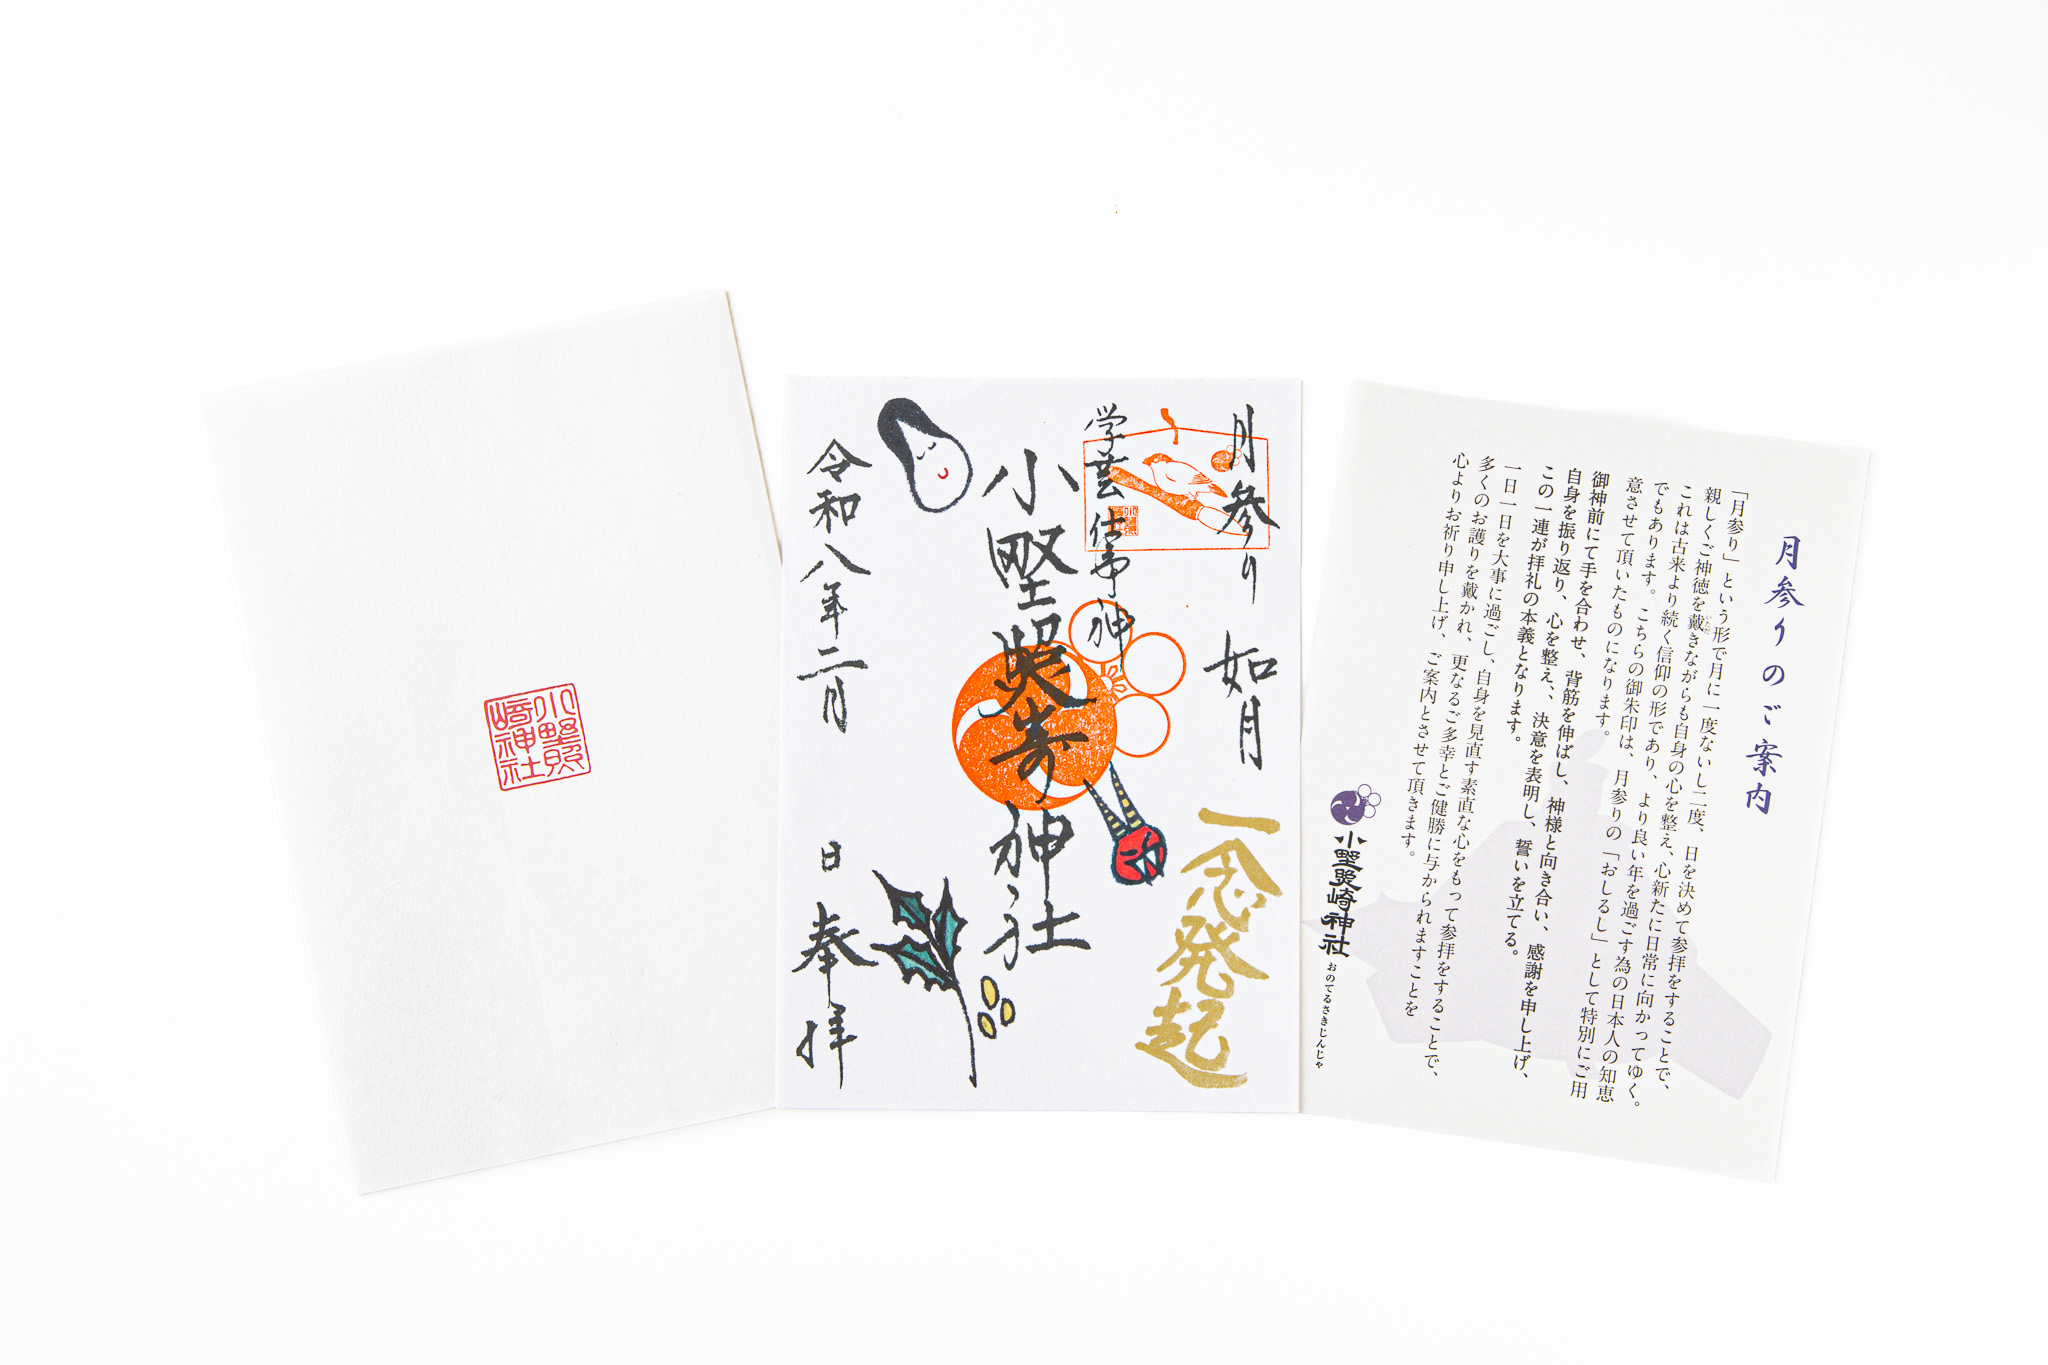 小野照
崎神社
月参り 如月
一念発起
学芸 仕事神
小野照崎神社
令和八年二月 日 奉拝
月参りのご案内
「月参り」という形で月に一度ないし二度、日を決めて参拝をすることで、
親しくご神徳を戴きながらも自身の心を整え、心新たに日常に向かってゆく。
いただ
これは古来より続く信仰の形であり、より良い年を過ごす為の日本人の知恵
でもあります。こちらの御朱印は、月参りの「おしるし」として特別にご用
意させて頂いたものになります。
御神前にて手を合わせ、背筋を伸ばし、神様と向き合い、感謝を申し上げ、
自身を振り返り、心を整え、、決意を表明し、誓いを立てる。
この一連が拝礼の本義となります。
一日一日を大事に過ごし、自身を見直す素直な心をもって参拝をすることで、
多くのお護りを戴かれ、更なるご多幸とご健勝に与かられますことを
心よりお祈り申し上げ、ご案内とさせて頂きます。
小野照崎神社
おのてるさきじんじゃ